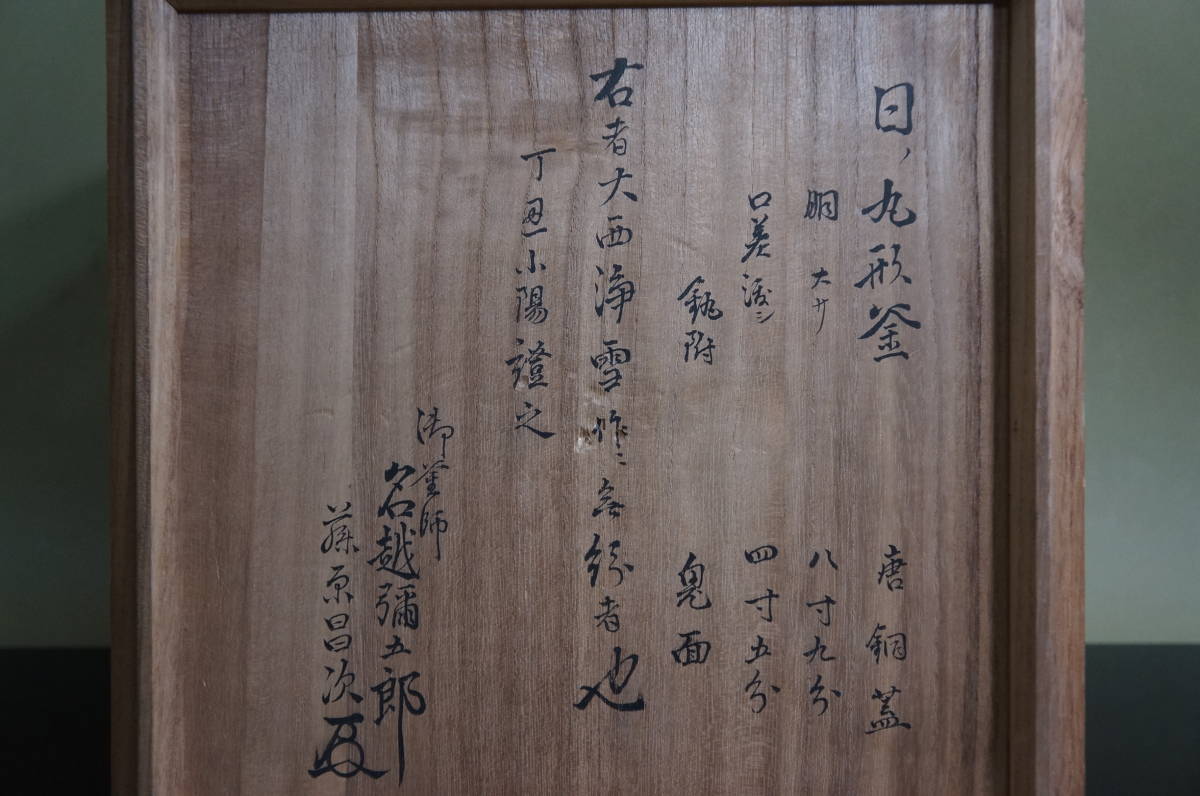 日ノ丸形釜 唐銅蓋
胴 大サ 八寸九分
口差渡シ 四寸五分
鐶附 鬼面
右者大西浄雪作ニ無紛者也
丁丑小陽證之
御釜師
名越彌五郎
藤原昌次